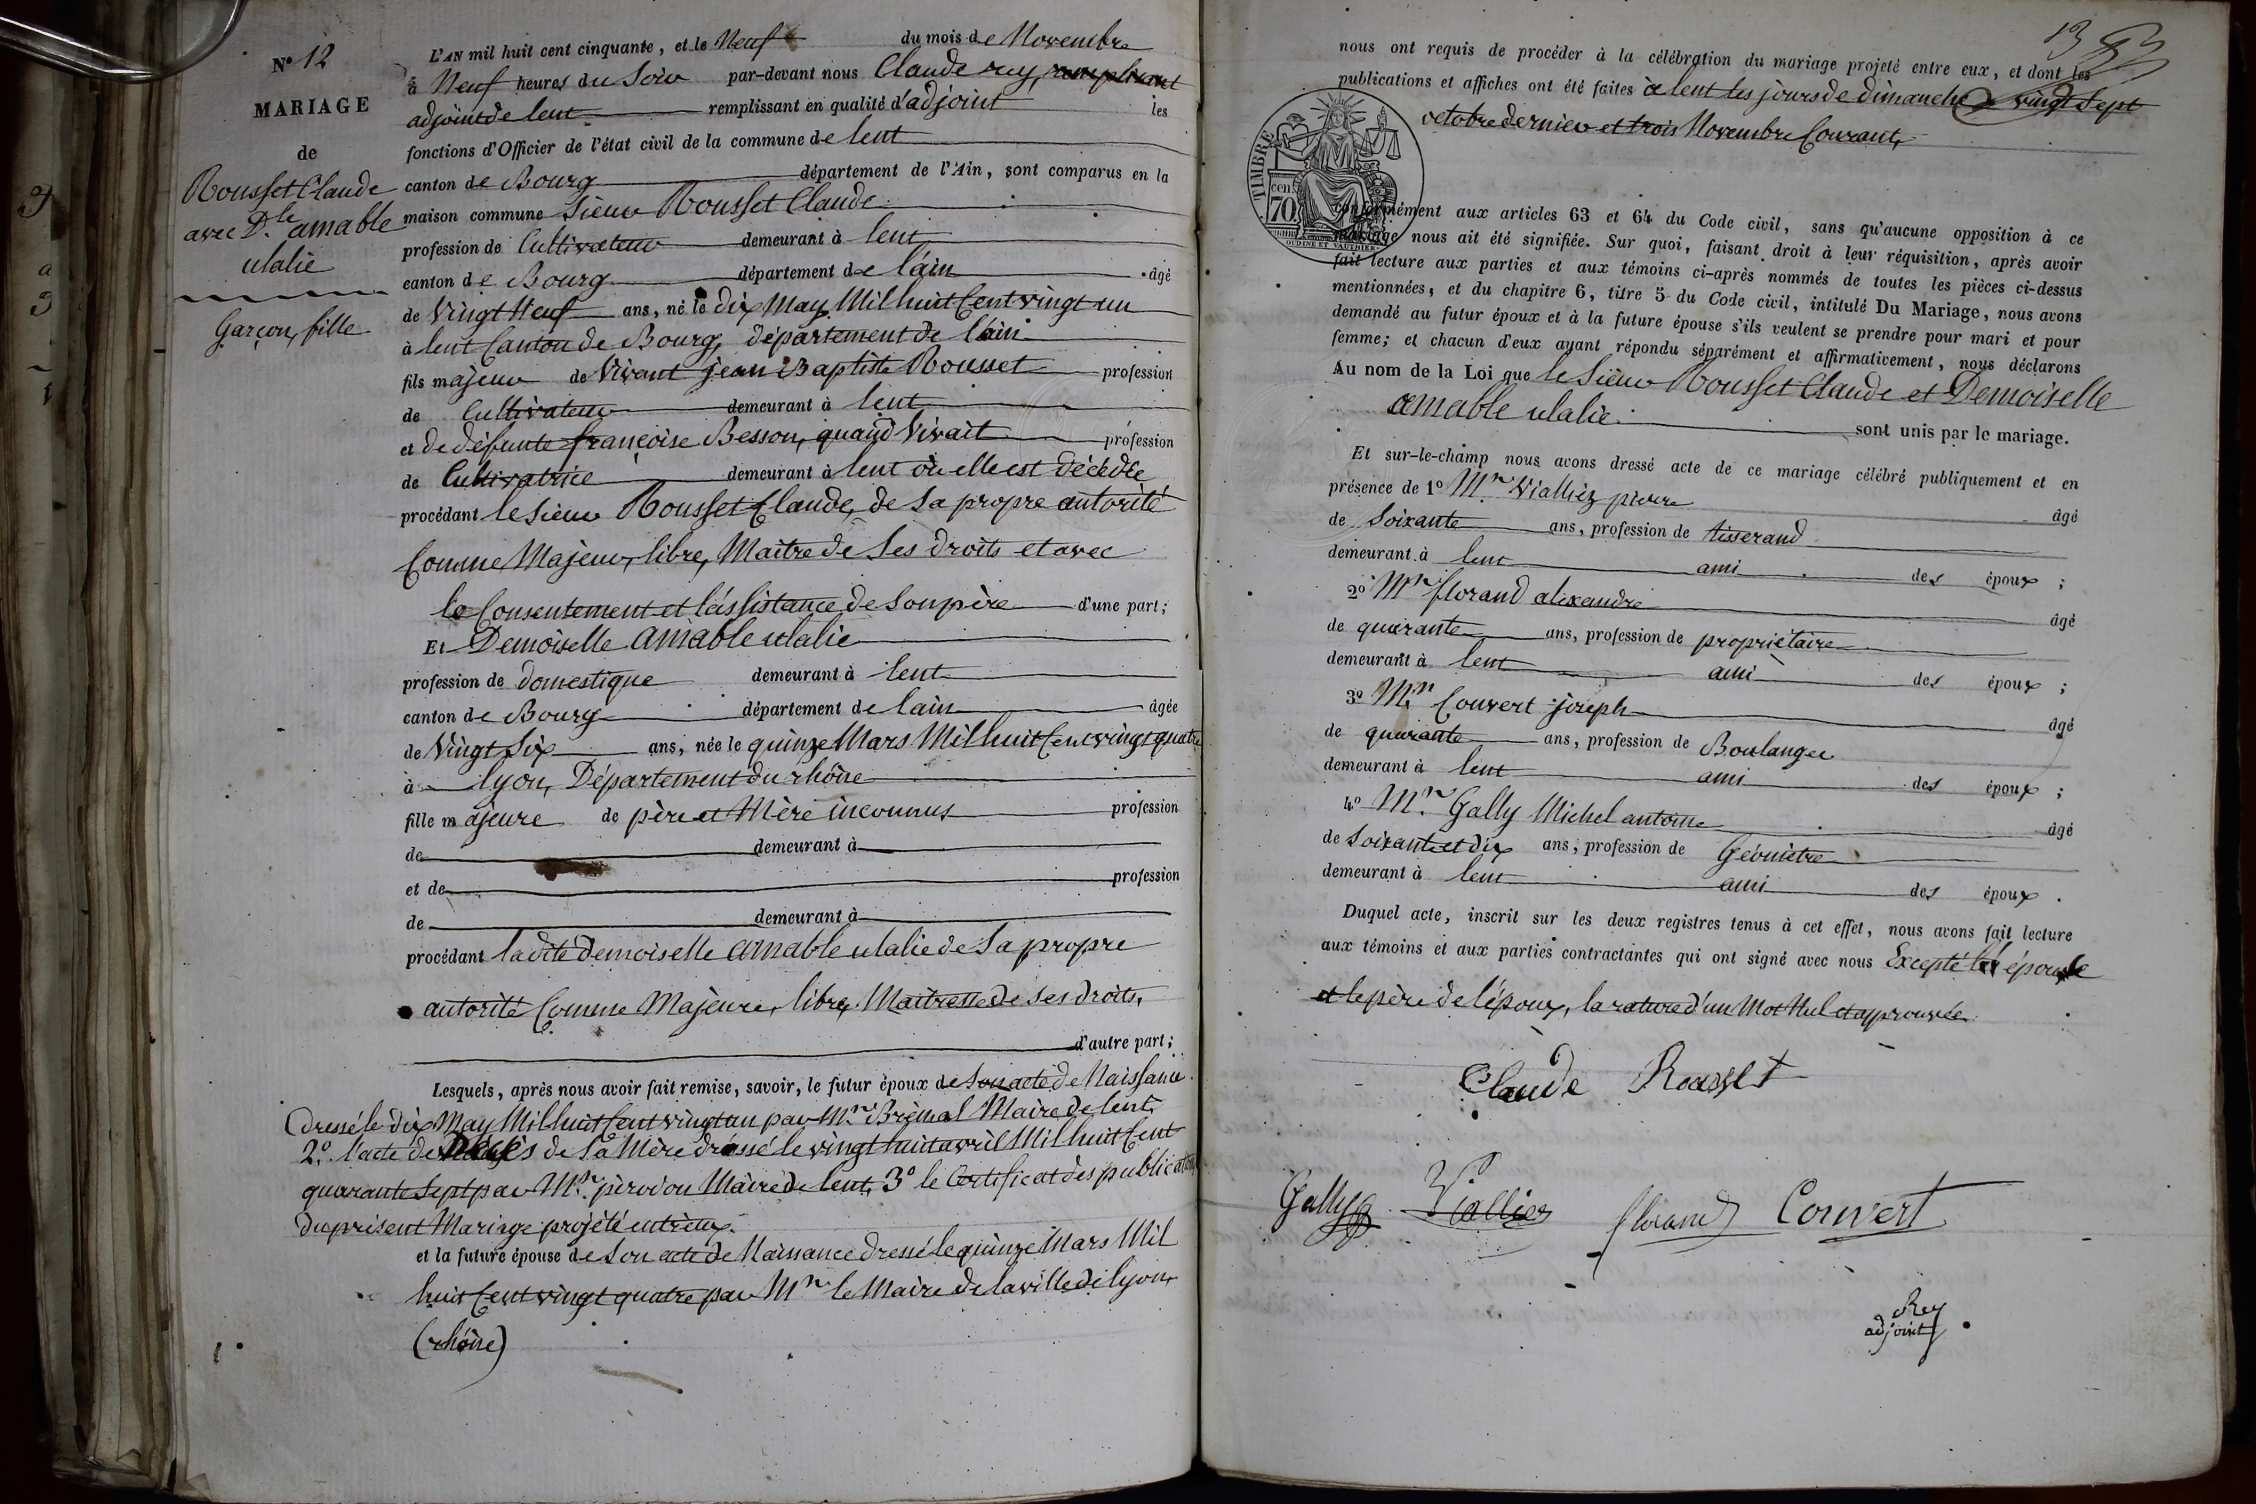 N° 12
MARIAGE
de
Rousset Claude
avec D.le amable
ulalie
Garçon, fille
L'AN mil huit cent cinquante, et le Neuf du mois de Novembre
à Neuf heures du Soir par-devant nous Claude rey, remplissant
adjoint de lent remplissant en qualité d'adjoint les
fonctions d'Officier de l'état civil de la commune de lent
canton de Bourg département de l'Ain, sont comparus en la
maison commune Sieur Rousset Claude
profession de Cultivateur demeurant à lent
canton de Bourg département de l'ain âgé
de Vingt Neuf ans, né le dix May Mil huit Cent vingt un
à lent Canton de Bourg, département de l'ain
fils majeur de Vivant jean Baptiste Rousset profession
de Cultivateur demeurant à lent
et de défunte françoise Besson, quand Vivait profession
de Cultivatrice demeurant à lent où elle est décédée
procédant le sieur Rousset Claude, de sa propre autorité
Comme Majeur, libre, Maître de Ses droits et avec
le Consentement et l'assistance de Son père d'une part ;
Et Demoiselle amable ulalie
profession de domestique demeurant à lent
canton de Bourg département de l'ain âgée
de Vingt Six ans, née le quinze Mars Mil huit Cent vingt quatre
à lyon, Département du rhône
fille majeure de père et Mère inconnus profession
de demeurant à
et de profession
de demeurant à
procédant ladite demoiselle amable ulalie de Sa propre
autorité Comme Majeure, libre, Maitresse de ses droits,
d'autre part ;
Lesquels, après nous avoir fait remise, savoir, le futur époux de Son acte de Naissance
dressé le dix May Mil huit Cent vingt un par M.r Maire de lent,
2.o l'acte de Décès de Sa Mère dréssé le vingt huit avril Mil huit Cent
quarante Sept par M.r Maire de lent, 3.o le Certificat dès publications
du présent Mariage projété entr'eux.
et la future épouse de Son acte de Naissance dressé le quinze Mars Mil
huit Cent vingt quatre par M.r le Maire de la ville de lyon,
(rhône)
13
nous ont requis de procéder à la célébration du mariage projeté entre eux, et dont les
publications et affiches ont été faites à lent les jours de dimanche vingt Sept
octobre dernier et trois Novembre Courant,
TIMBRE
70 cen.
OUDINE ET VAUTHIER
conformément aux articles 63 et 64 du Code civil, sans qu'aucune opposition à ce
mariage nous ait été signifiée. Sur quoi, faisant droit à leur réquisition, après avoir
fait lecture aux parties et aux témoins ci-après nommés de toutes les pièces ci-dessus
mentionnées, et du chapitre 6, titre 5 du Code civil, intitulé Du Mariage, nous avons
demandé au futur époux et à la future épouse s'ils veulent se prendre pour mari et pour
femme; et chacun d'eux ayant répondu séparément et affirmativement, nous déclarons
Au nom de la Loi que le Sieur Rousset Claude et Demoiselle
amable ulalie sont unis par le mariage.
Et sur-le-champ nous avons dressé acte de ce mariage célébré publiquement et en
présence de 1° M.r Viallier pierre âgé
de Soixante ans, profession de tisserand
demeurant à lent ami des époux ;
2° M.r florand alexandre âgé
de quarante ans, profession de propriétaire
demeurant à lent ami des époux ;
3° M.r Couvert joseph âgé
de quarante ans, profession de Boulanger
demeurant à lent ami des époux ;
4° M.r Gally Michel antoine âgé
de Soixante et dix ans, profession de Géomètre
demeurant à lent ami des époux .
Duquel acte, inscrit sur les deux registres tenus à cet effet, nous avons fait lecture
aux témoins et aux parties contractantes qui ont signé avec nous Excepté l'épouse
et le père de l'époux, la rature d'un Mot Nul et approuvée.
Claude Rousset
Gally Viallier florand Couvert
Rey
adjoint